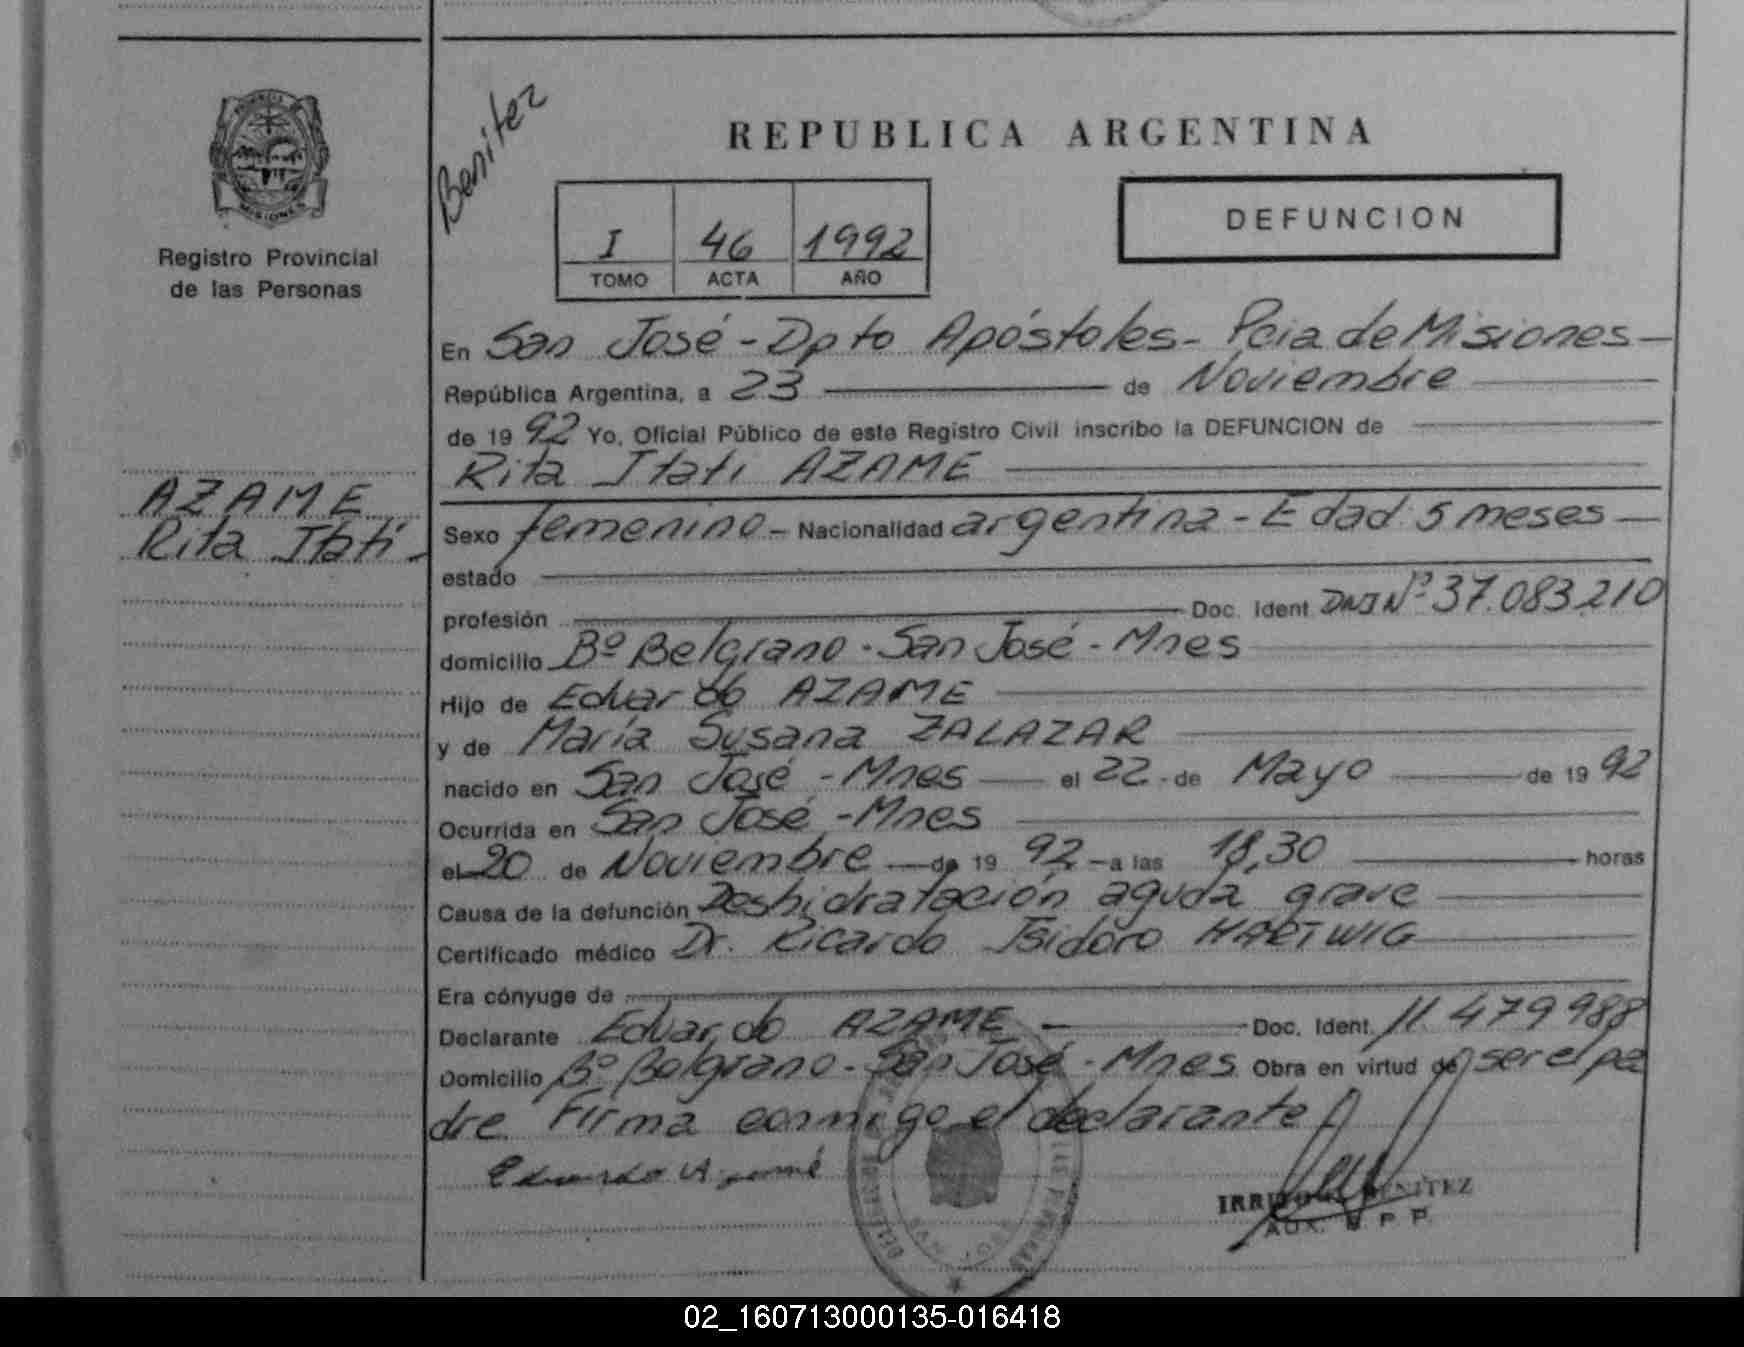 PROVINCIA DE
MISIONES
Registro Provincial
de las Personas
AZAME
Rita Itatí -
Benitez
REPUBLICA ARGENTINA
I 46 1992
TOMO ACTA AÑO
DEFUNCION
En San José - Dpto Apóstoles - Pcia de Misiones -
República Argentina, a 23 de Noviembre
de 19 92 Yo, Oficial Público de este Registro Civil inscribo la DEFUNCION de
Rita Itati AZAME
Sexo femenino - Nacionalidad argentina - Edad 5 meses -
estado
profesión Doc. Ident. DNI Nº 37.083.210
domicilio Bº Belgrano - San José - Mnes
Hijo de Eduardo AZAME
y de María Susana ZALAZAR
nacido en San José - Mnes el 22 - de Mayo de 19 92
Ocurrida en San José - Mnes
el 20 de Noviembre de 19 92 - a las 18,30 horas
Causa de la defunción Deshidratación aguda grave
Certificado médico Dr. Ricardo Isidoro HARTWIG
Era cónyuge de
Declarante Eduardo AZAME - Doc. Ident. 11.479.988
Domicilio Bº Belgrano - San José - Mnes Obra en virtud de ser el pa
dre Firma conmigo el declarante
Eduardo Azamé
BENITEZ
AUX. R P P.
02_160713000135-016418